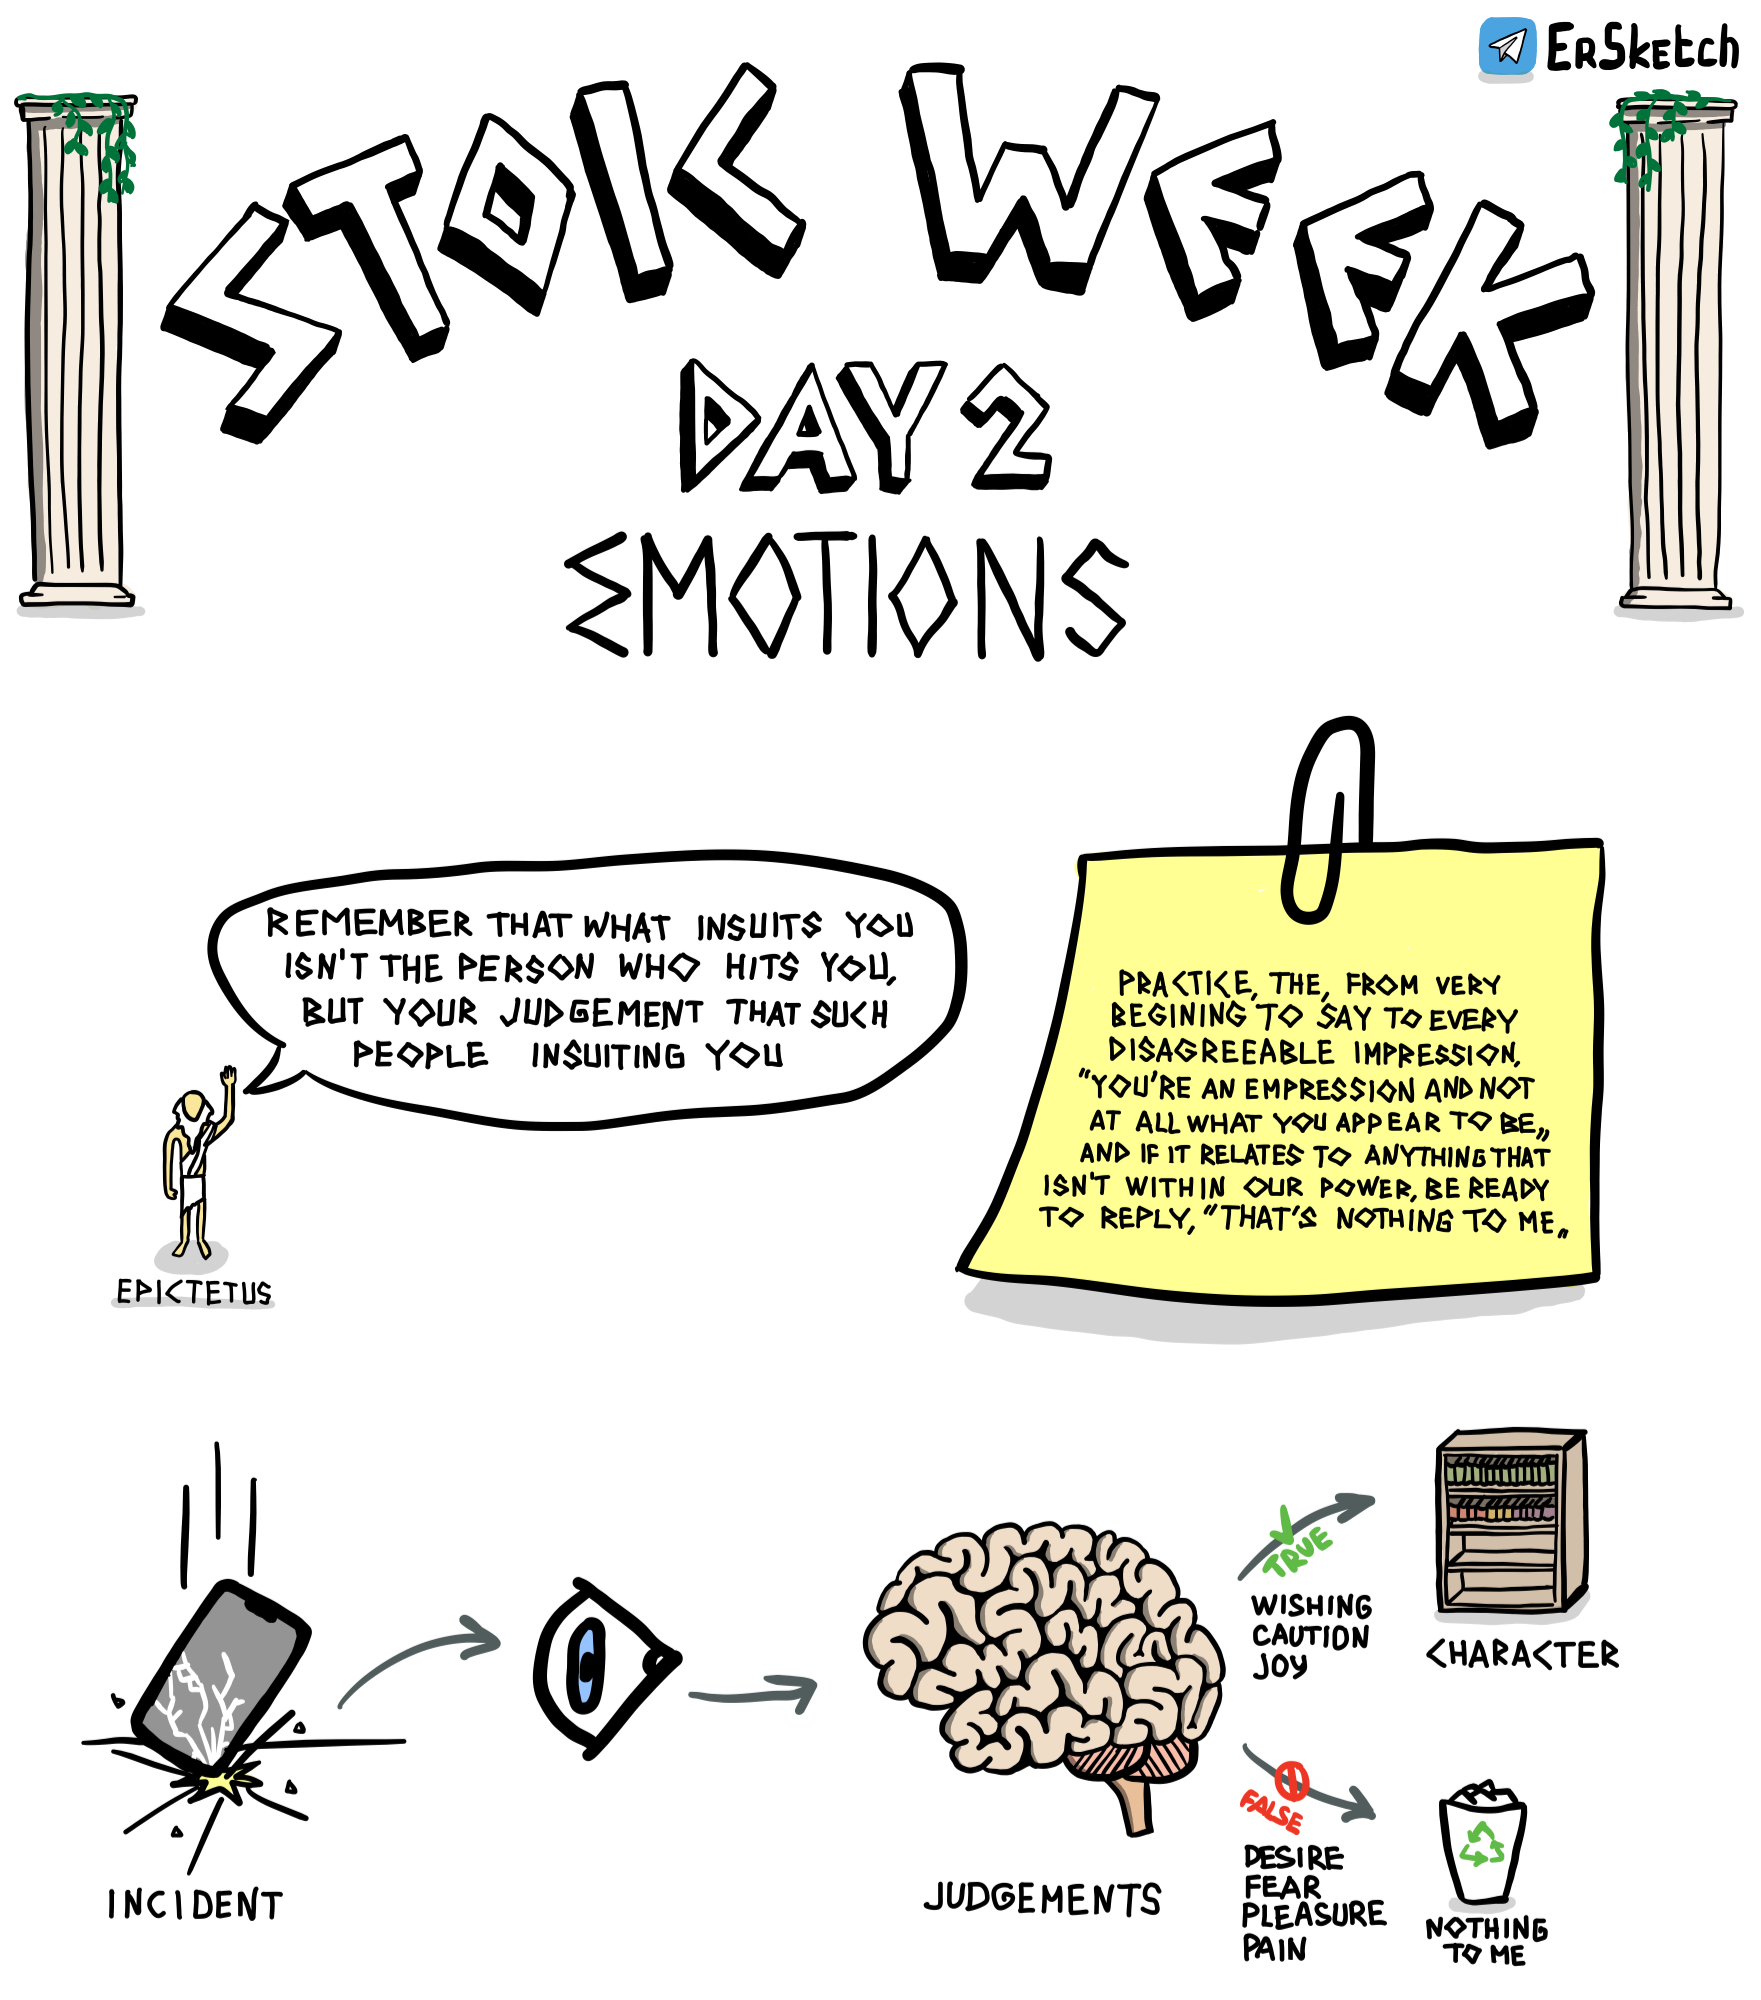 ErSketch
STOIC WEEK
DAY 2
EMOTIONS
REMEMBER THAT WHAT INSUITS YOU
ISN'T THE PERSON WHO HITS YOU,
BUT YOUR JUDGEMENT THAT SUCH
PEOPLE INSUITING YOU
EPICTETUS
PRACTICE, THE, FROM VERY
BEGINING TO SAY TO EVERY
DISAGREEABLE IMPRESSION,
"YOU'RE AN EMPRESSION AND NOT
AT ALL WHAT YOU APPEAR TO BE„
AND IF IT RELATES TO ANYTHING THAT
ISN'T WITHIN OUR POWER, BE READY
TO REPLY, "THAT'S NOTHING TO ME„
INCIDENT
JUDGEMENTS
TRUE
WISHING
CAUTION
JOY
CHARACTER
FALSE
DESIRE
FEAR
PLEASURE
PAIN
NOTHING
TO ME